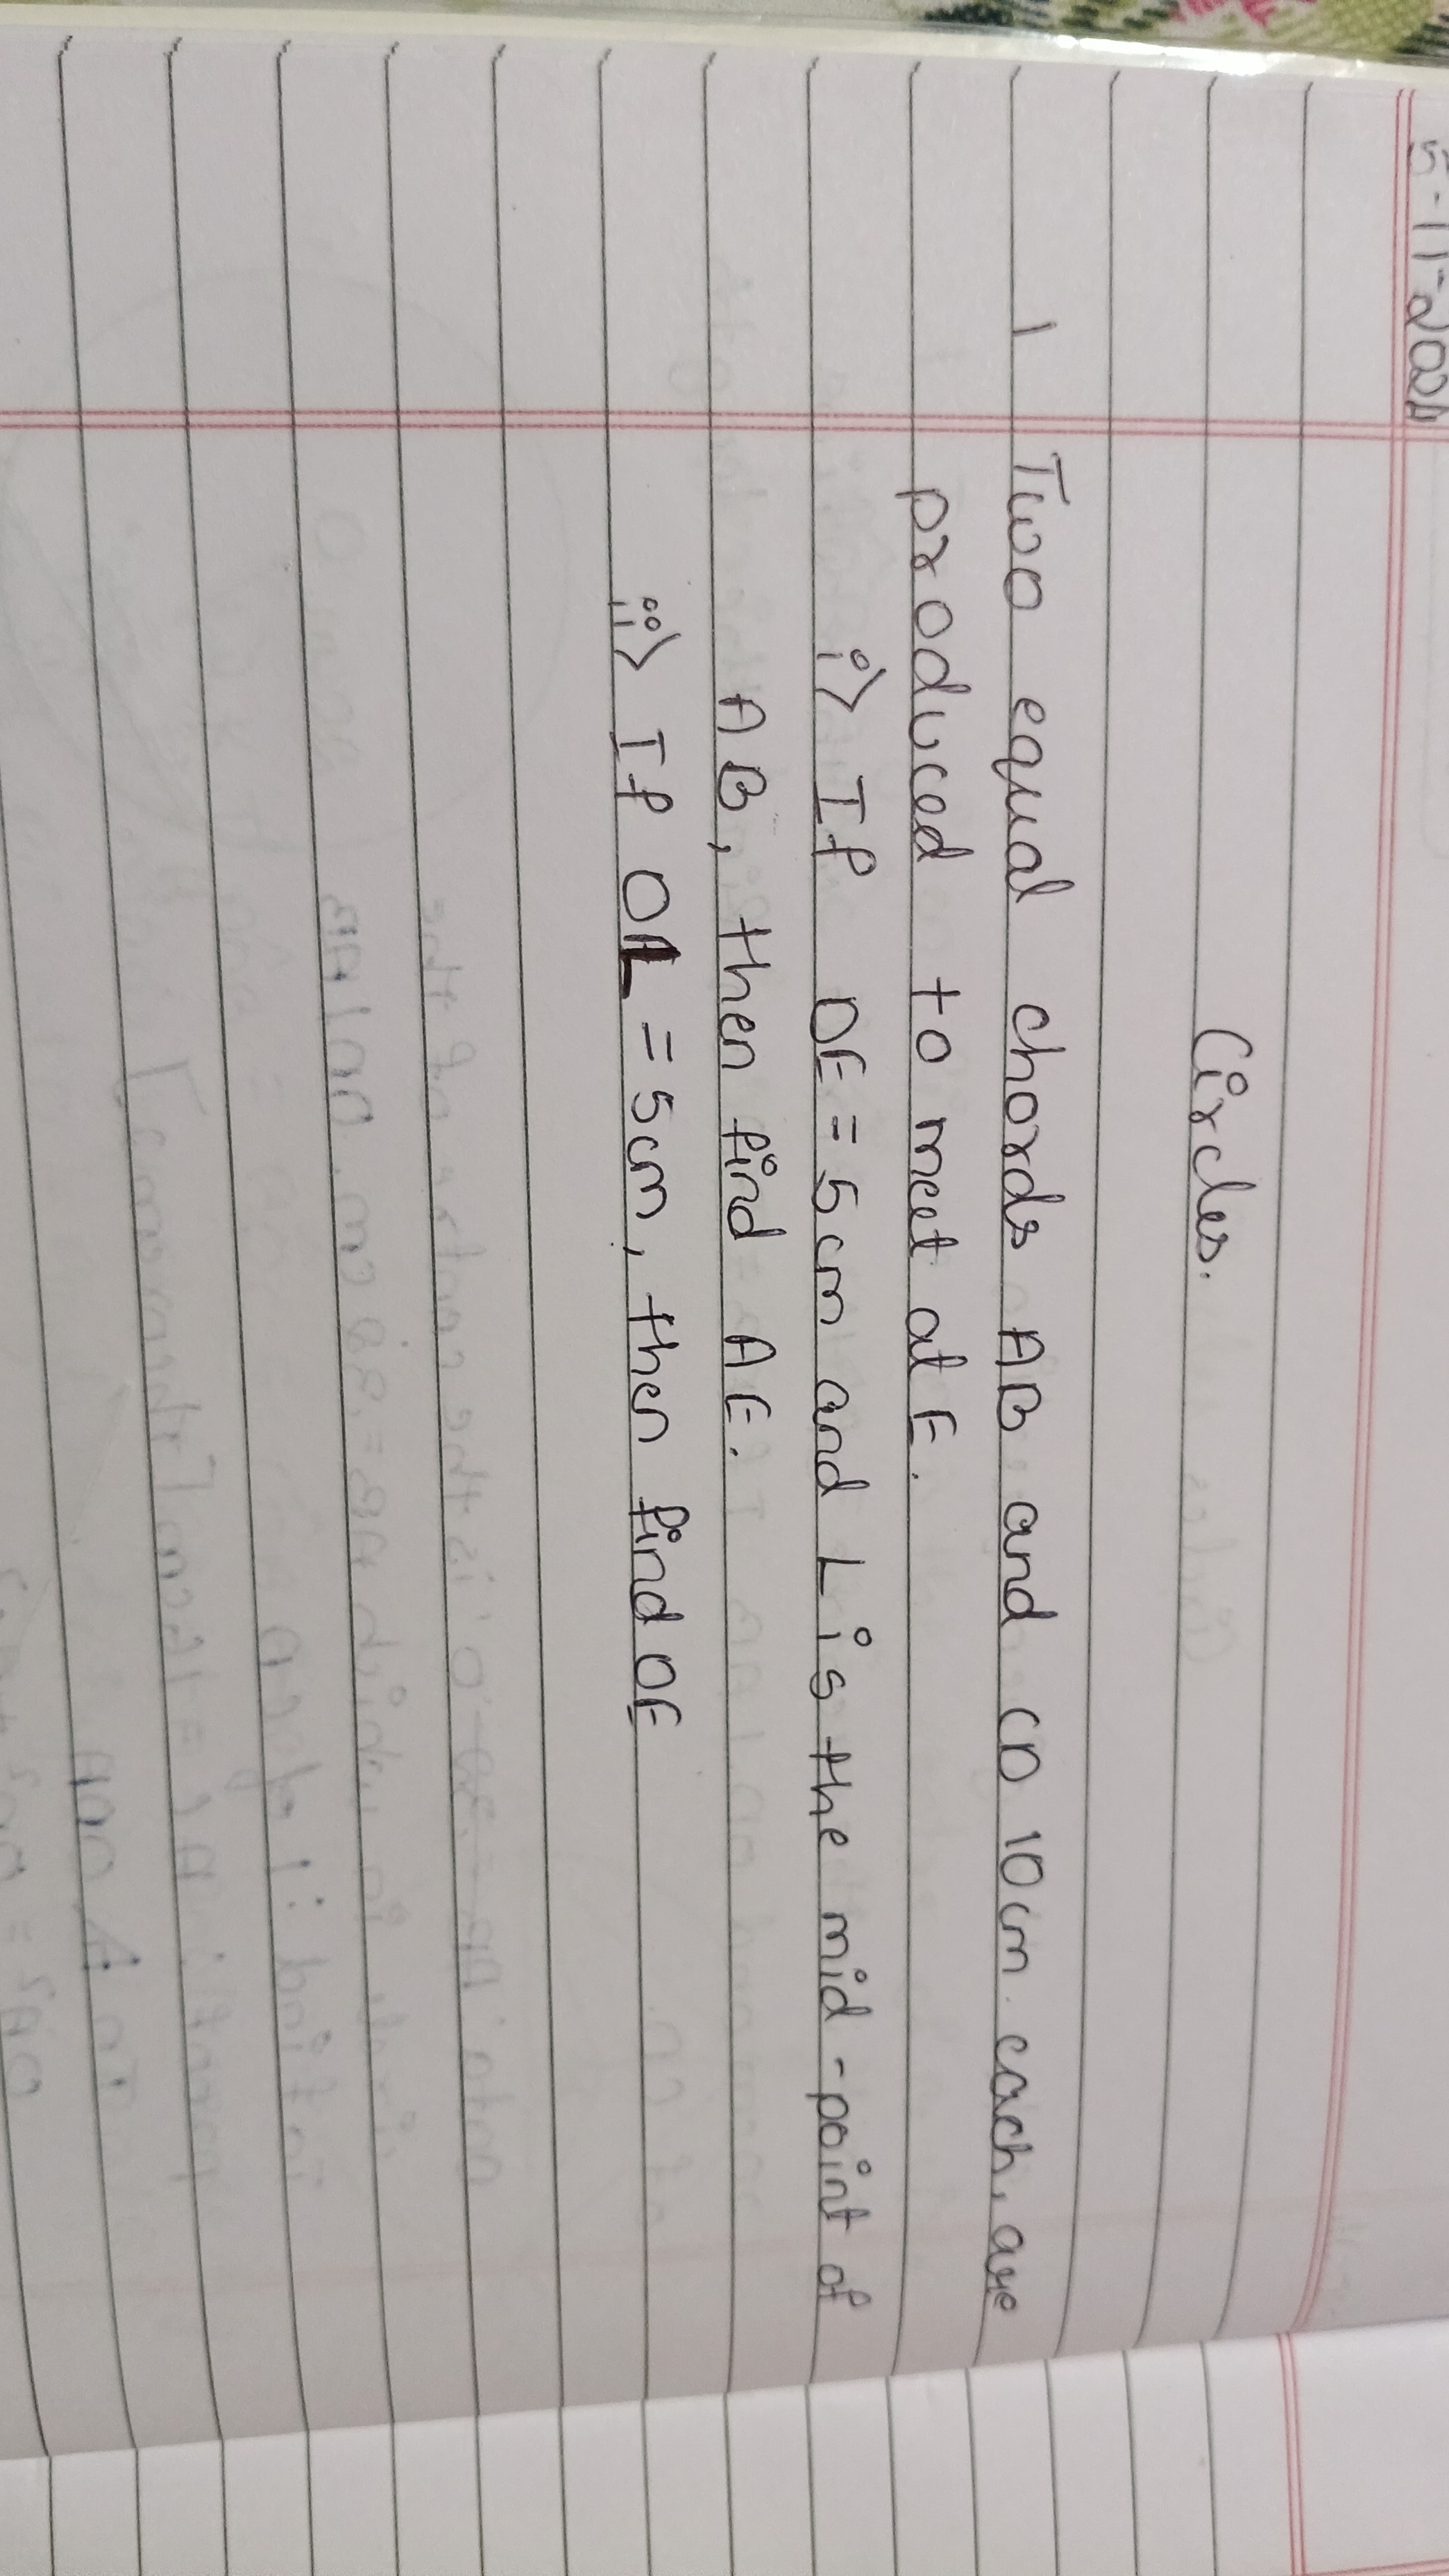 Circles.
1 Two equal chords AB and CD 10cm each, are
produced to meet at E.
i> If DE = 5cm and L is the mid-point of
AB, then find AE.
ii> If OL = 5cm, then find OE